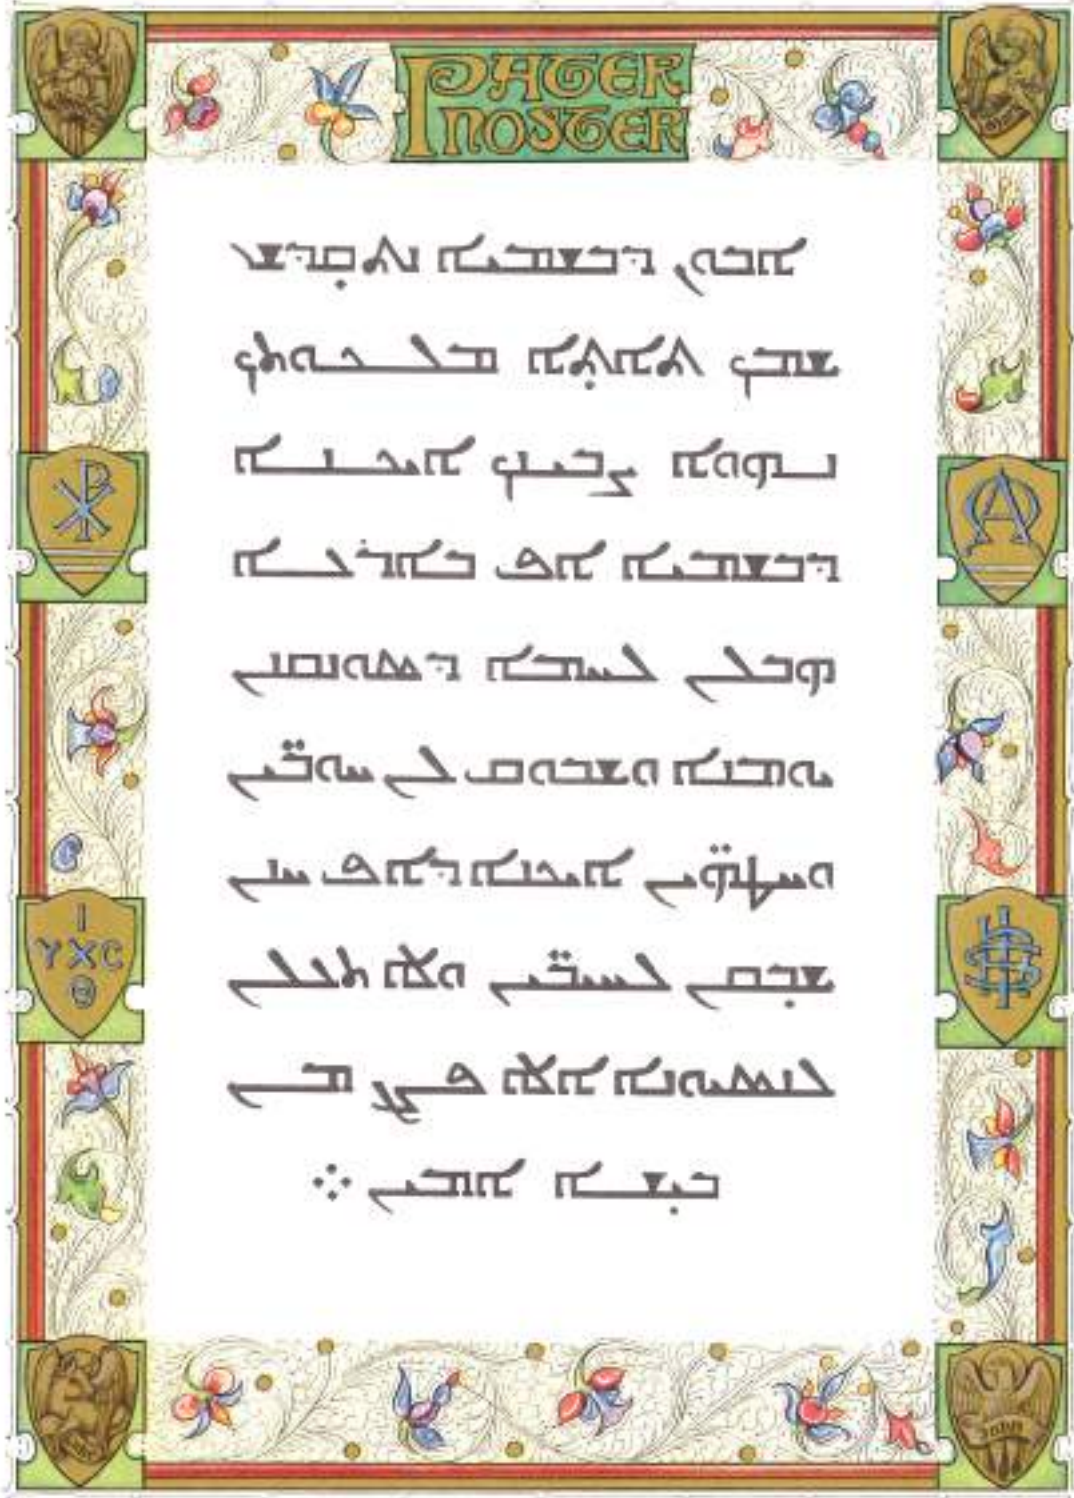 PATER
NOSTER
ܐܒܘܢ ܕܒܫܡܝܐ ܢܬܩ̣ܕܫ
ܫܡܟ ܬܐܬ̣ܐ ܡܠܟܘܬܟ
ܢܗܘܐ ܨܒܝܢܟ ܐܝܟܢܐ
ܕܒܫܡܝܐ ܐܦ ܒܐܪܥܐ
ܗܒܠܢ ܠܚܡܐ ܕܣܘܢܩܢܢ
ܝܘܡܢܐ ܘܫܒܘܩ ܠܢ ܚܘܒ̈ܝܢ
ܘܚܛܗ̈ܝܢ ܐܝܟܢܐ ܕܐܦ ܚܢܢ
ܫܒ̣ܩܢ ܠܚܝܒ̈ܝܢ ܘܠܐ ܬܥܠܢ
ܠܢܣܝܘܢܐ ܐܠܐ ܦܨܢ ܡܢ
ܒܝܫ̣ܐ ܐܡܝܢ ܀
I
YXC
Θ
IHS